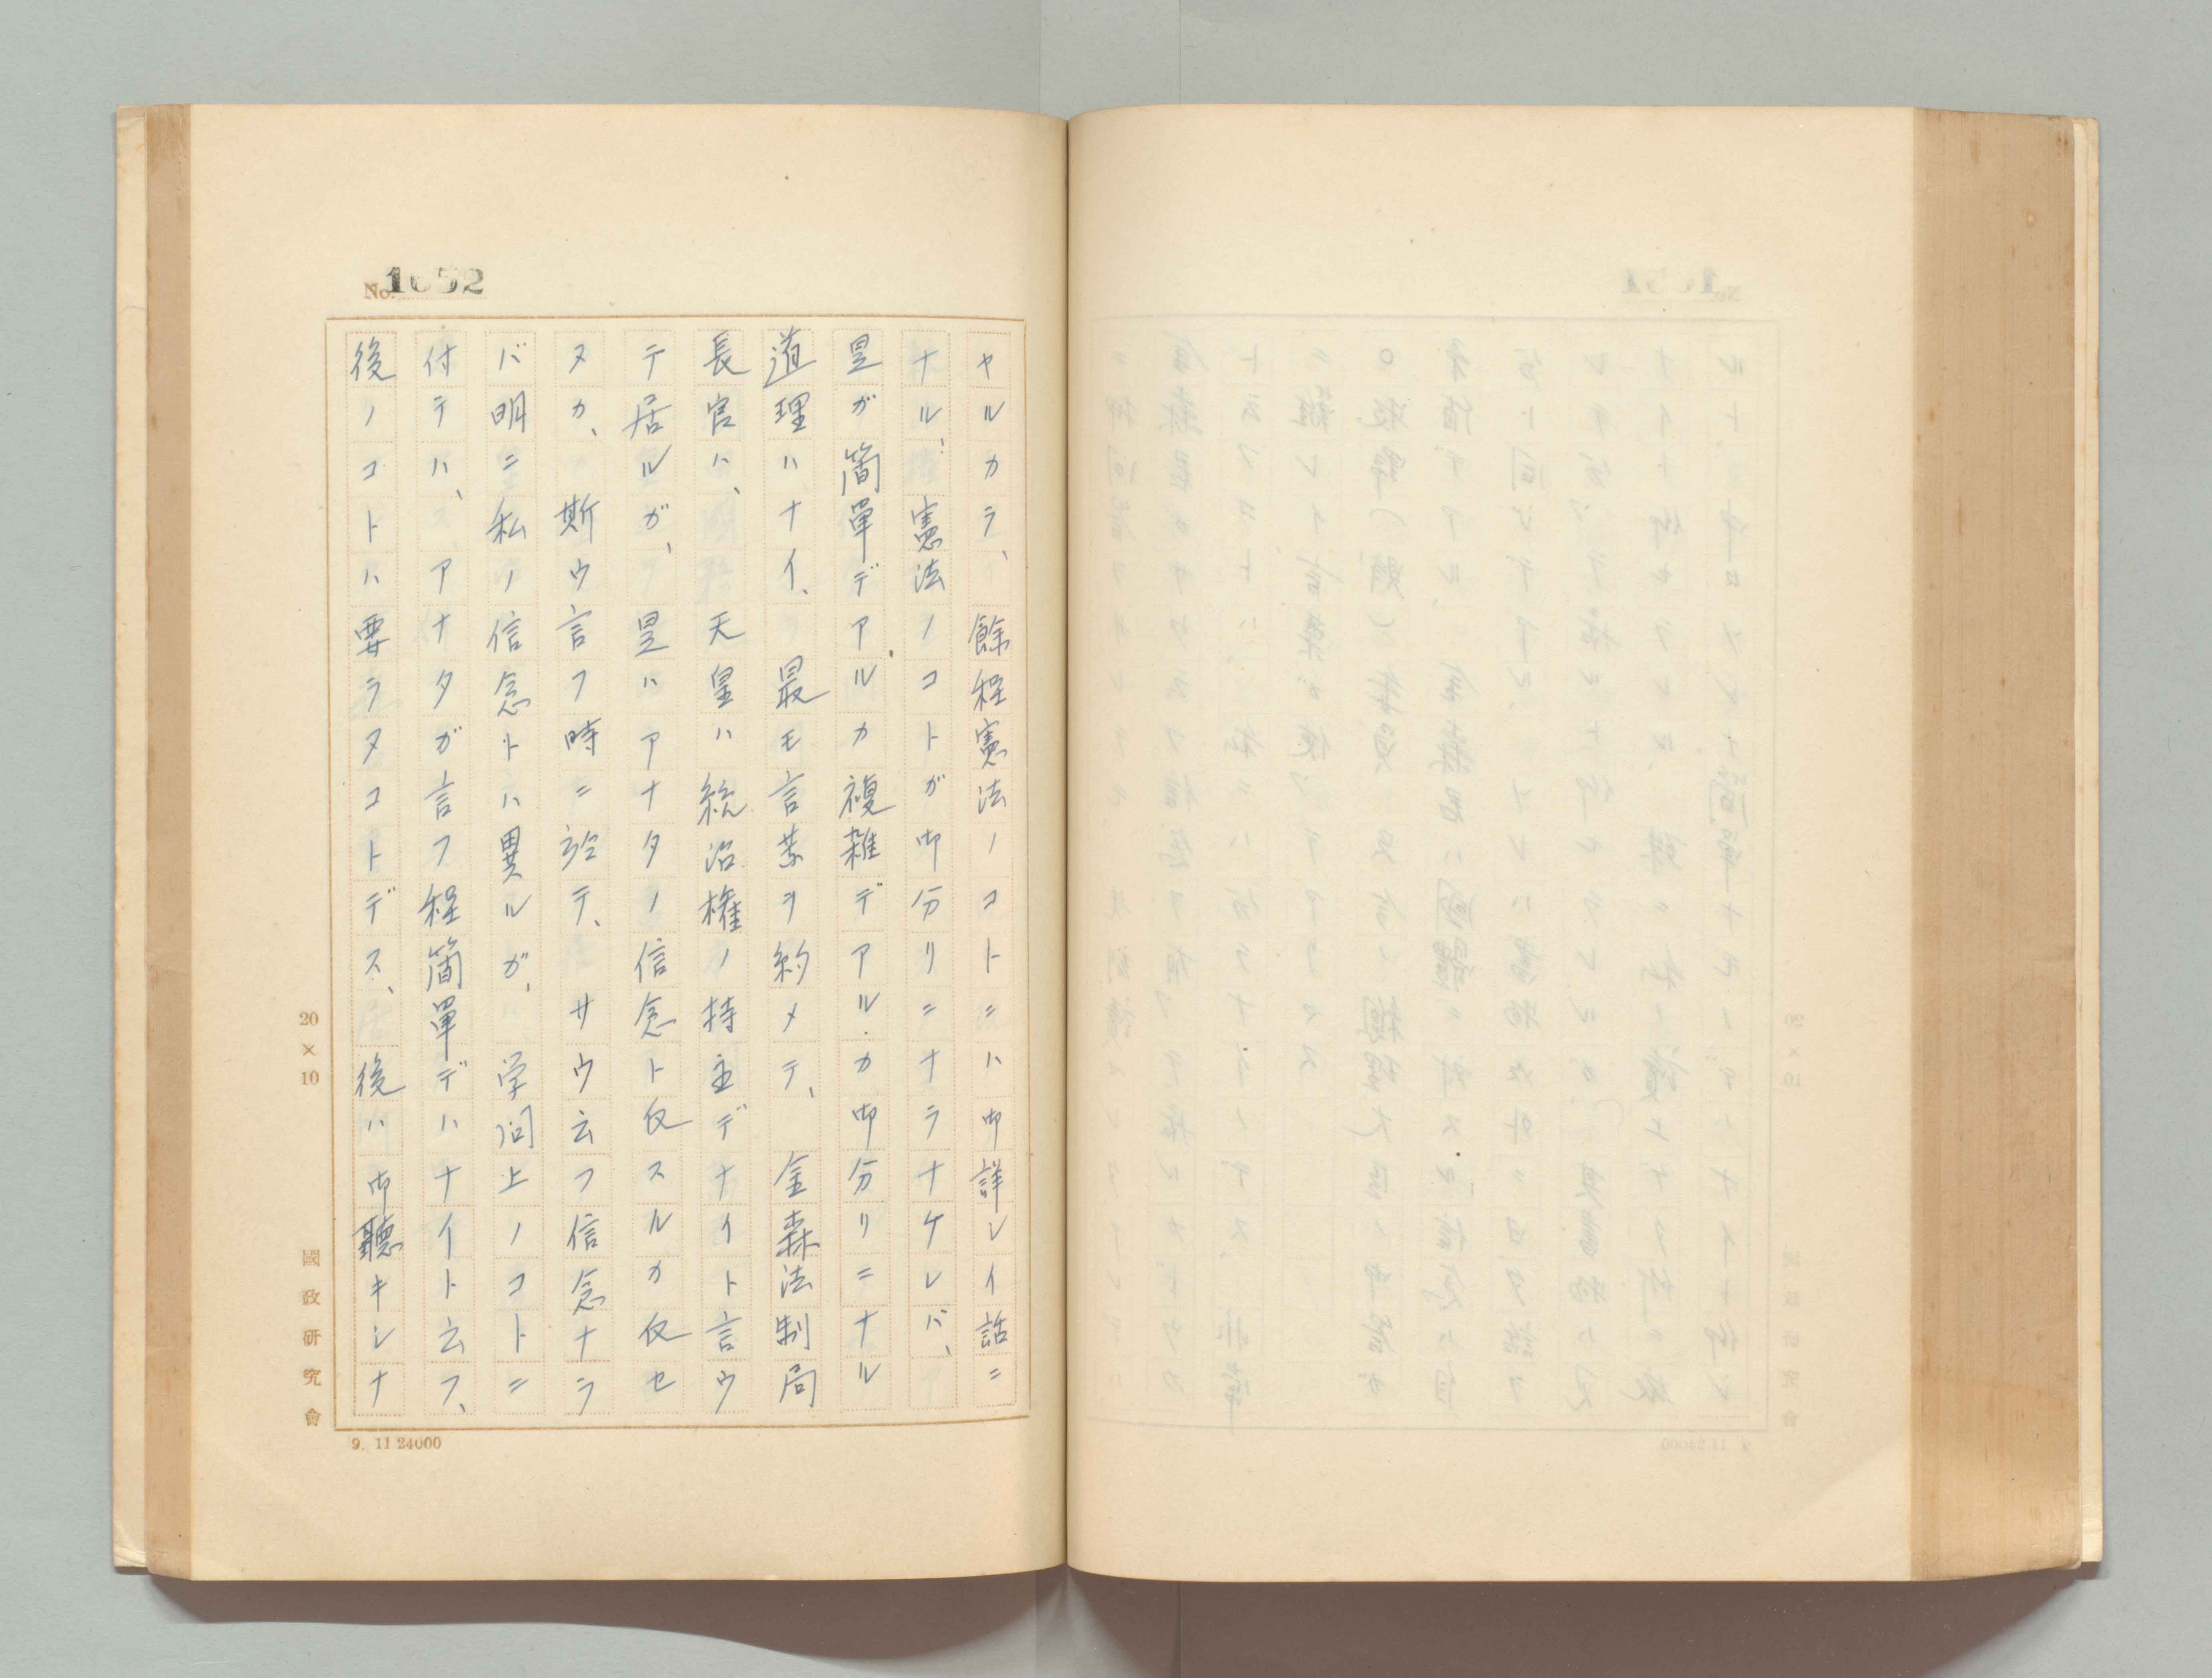 No. 1652
ヤルカラ、餘程憲法ノコトニハ御詳シイ話ニ
ナル、憲法ノコトガ御分リニナラナケレバ、
是ガ簡單デアルカ複雑デアルカ御分リニナル
道理ハナイ、最モ言葉ヲ約メテ、金森法制局
長官ハ、天皇ハ統治權ノ持主デナイト言ウ
テ居ルガ、是ハアナタノ信念ト仮スルカ仮セ
ヌカ、斯ウ言フ時ニ於テ、サウ云フ信念ナラ
バ明ニ私ノ信念トハ異ルガ、学问上ノコトニ
付テハ、アナタガ言フ程簡單デハナイト云フ、
後ノコトハ要ラヌコトデス、後ハ御聽キシナ
20×10
國政研究會
9. 11.24000